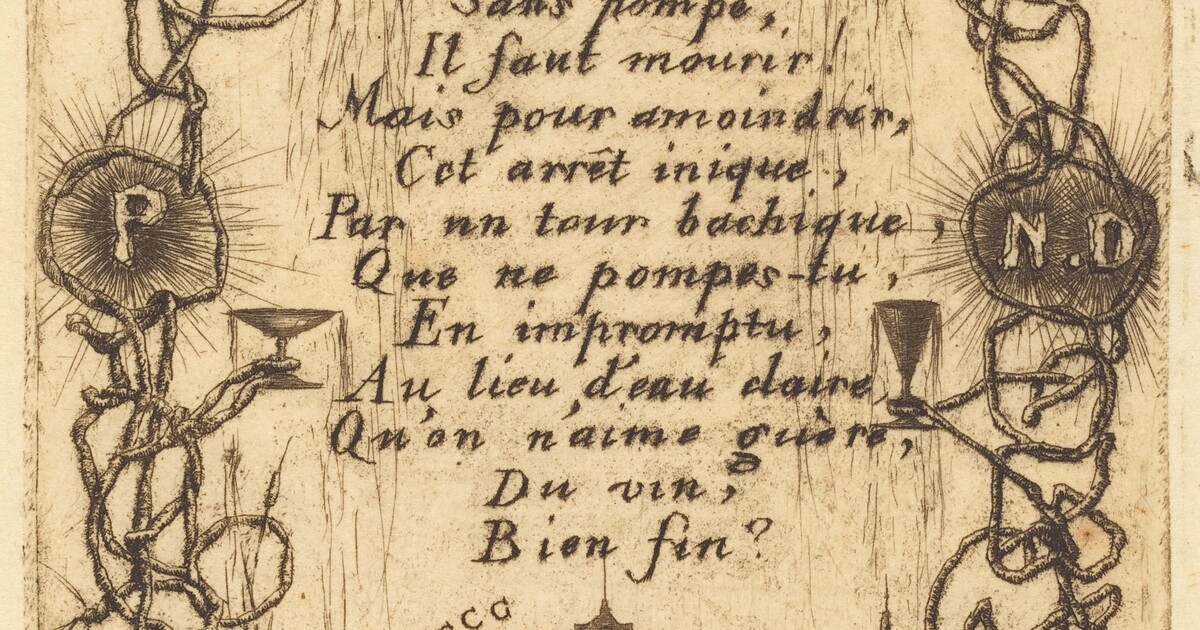 Sans pompe,
Il faut mourir!
Mais pour amoindrir,
Cet arrêt inique,
Par un tour bachique,
Que ne pompes-tu,
En impromptu,
Au lieu d'eau claire,
Qu'on n'aime guère,
Du vin,
Bien fin?
P
N.D